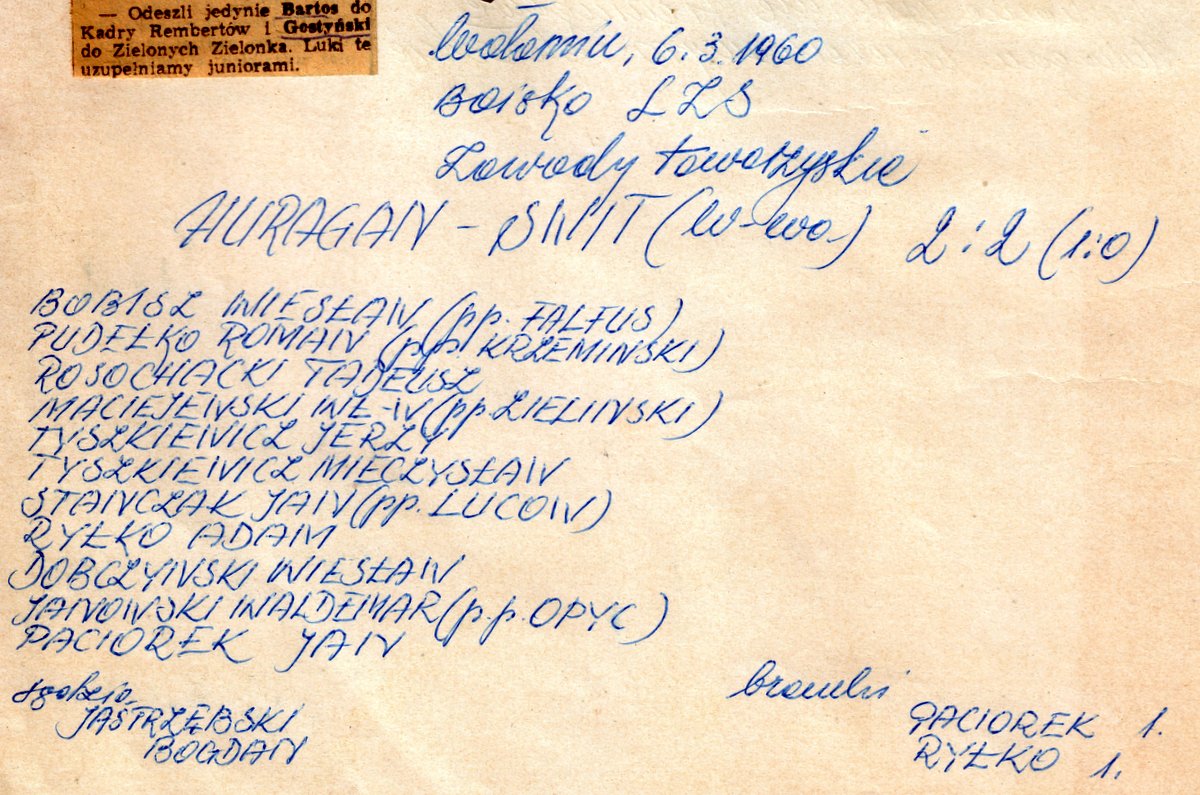 — Odeszli jedynie Bartos do
Kadry Rembertów i Gostyński
do Zielonych Zielonka. Luki te
uzupełniamy juniorami.
Wołomin, 6.3.1960
Boisko LZS
Zawody towarzyskie
HURAGAN - ŚWIT (W-wa) 2:2 (1:0)
BOBISZ WIESŁAW (pp. FALFUS)
PUDEŁKO ROMAN (pp. KRZEMINSKI)
ROSOCHACKI TADEUSZ
MACIEJEWSKI WŁ-W (pp. ZIELINSKI)
TYSZKIEWICZ JERZY
TYSZKIEWICZ MIECZYSŁAW
STANCZAK JAN (pp. LUCOW)
RYŁKO ADAM
DOBCZYNSKI WIESŁAW
JANOWSKI WALDEMAR (p.p. OPYC)
PACIOREK JAN
sędzia
JASTRZĘBSKI
BOGDAN
bramki
PACIOREK 1.
RYŁKO 1.